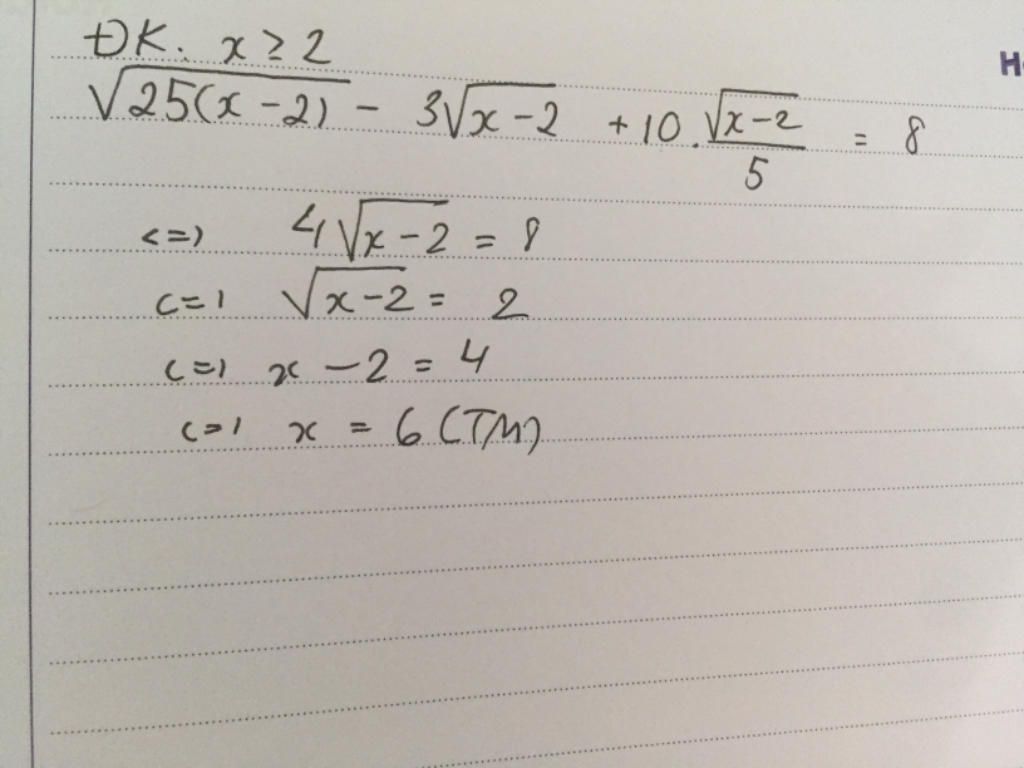 ĐK. x ≥ 2
H
√25(x - 2) - 3√x - 2 + 10 . √x - 2 / 5 = 8
<=> 4√x - 2 = 8
<=> √x - 2 = 2
<=> x - 2 = 4
<=> x = 6 (TM)